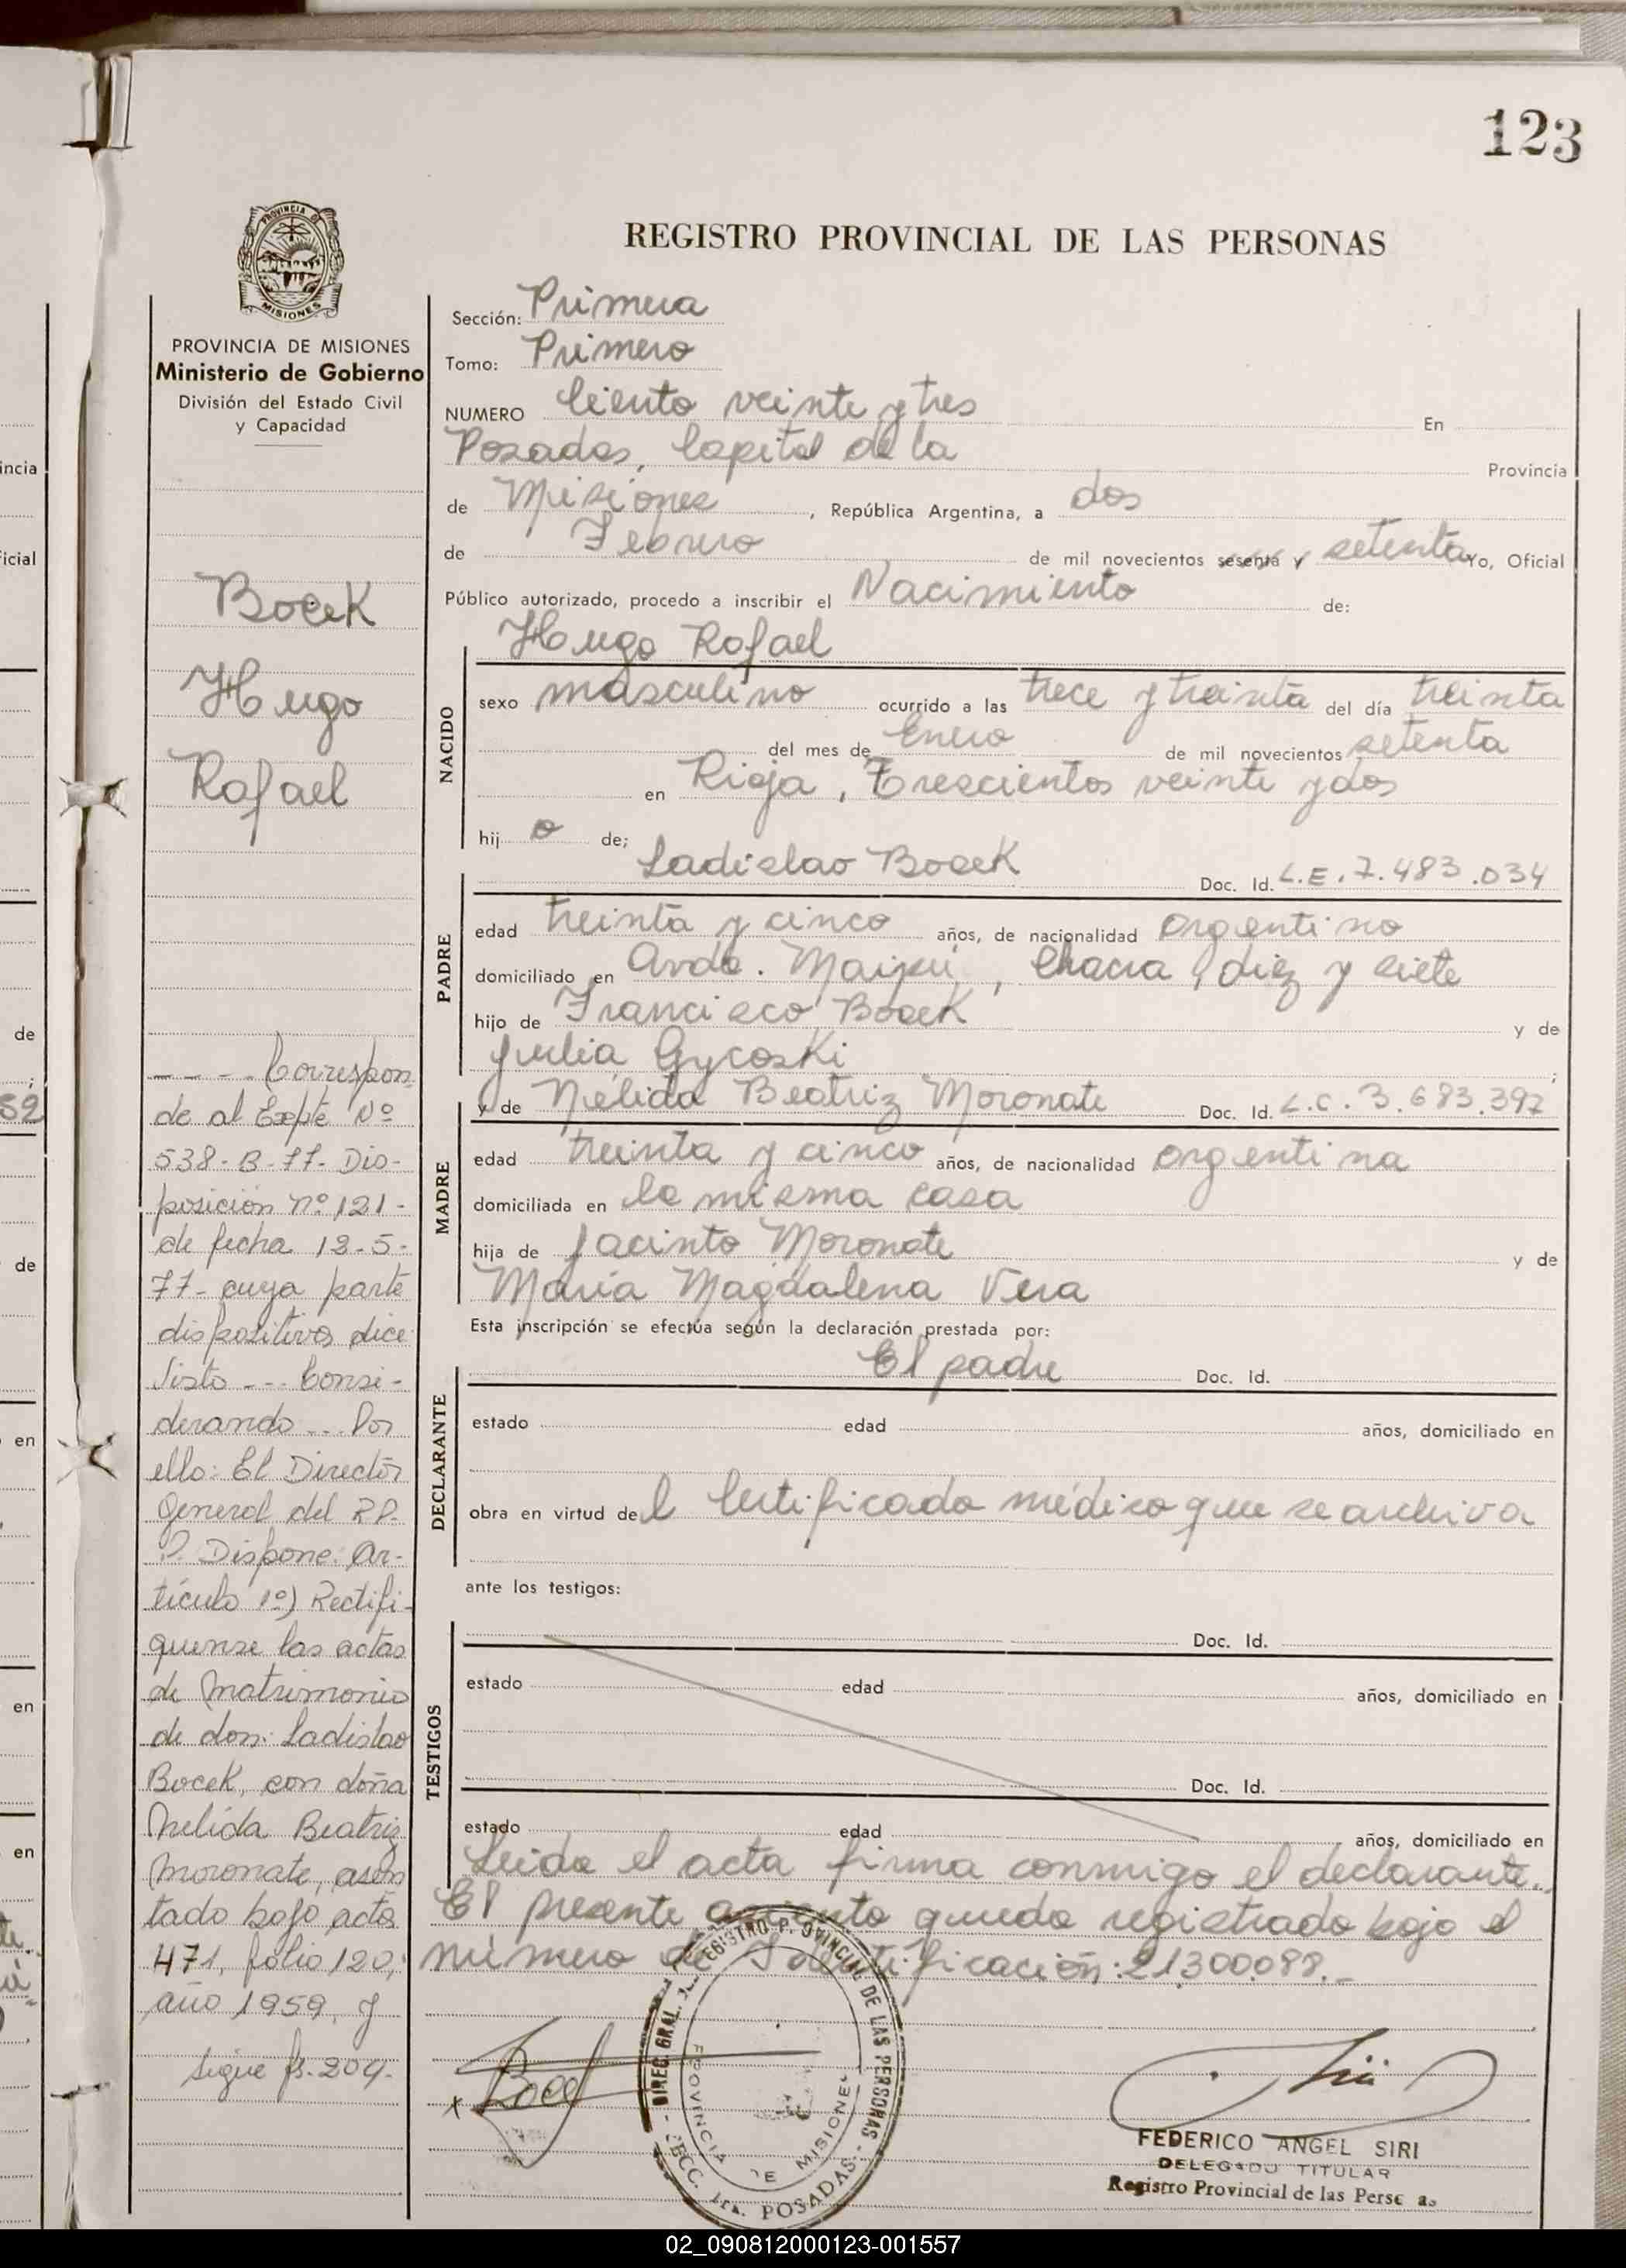 123
REGISTRO PROVINCIAL DE LAS PERSONAS
PROVINCIA DE
MISIONES
PROVINCIA DE MISIONES
Ministerio de Gobierno
División del Estado Civil
y Capacidad
Bocek
Hugo
Rafael
- - - - Correspon
de al Expte Nº
538-B-77- Dis-
posición nº 121-
de fecha 12-5-
77- cuya parte
dispositiva dice
Visto --- Consi-
derando --- Por
ello: El Director
General del R.P.
P. Dispone: Ar-
tículo 1º) Rectifi-
quense las actas
de Matrimonio
de don: Ladislao
Bocek, con doña
Nelida Beatriz
Moronate, asen
tado bajo acta
471, folio 120,
año 1959, y
sigue fs. 204.
Sección: Primera
Tomo: Primero
NUMERO Ciento veinte y tres En
Posadas, Capital de la Provincia
de Misiones, República Argentina, a dos
de Febrero de mil novecientos sesenta y setenta Yo, Oficial
Público autorizado, procedo a inscribir el Nacimiento de:
Hugo Rafael
NACIDO
sexo masculino ocurrido a las trece y treinta del día treinta
del mes de Enero de mil novecientos setenta
en Rioja, Trescientos veinte y dos
hij o de;
Ladislao Bocek Doc. Id. L.E. 7.483.034
PADRE
edad treinta y cinco años, de nacionalidad argentino
domiciliado en Avda. Maipú, Chacra, diez y siete
hijo de Francisco Bocek y de
Julia Gycoski ;
y de Nélida Beatriz Moronate Doc. Id. L.C. 3.683.397
MADRE
edad treinta y cinco años, de nacionalidad argentina
domiciliada en la misma casa
hija de Jacinto Moronate y de
María Magdalena Vera
Esta inscripción se efectúa según la declaración prestada por:
El padre Doc. Id.
DECLARANTE
estado edad años, domiciliado en
obra en virtud del Certificado médico que se archiva
ante los testigos:
Doc. Id.
TESTIGOS
estado edad años, domiciliado en
Doc. Id.
estado edad años, domiciliado en
Leida el acta firma conmigo el declarante.
El presente asiento queda registrado bajo el
número de Identificación: 21.300.088.-
x Bocek
DIREC. GRAL. REGISTRO PROVINCIAL DE LAS PERSONAS
SECC. 1ra. POSADAS
PROVINCIA DE MISIONES
FEDERICO ANGEL SIRI
DELEGADO TITULAR
Registro Provincial de las Persc as
incia
icial
de
;
52
de
en
en
en
02_090812000123-001557